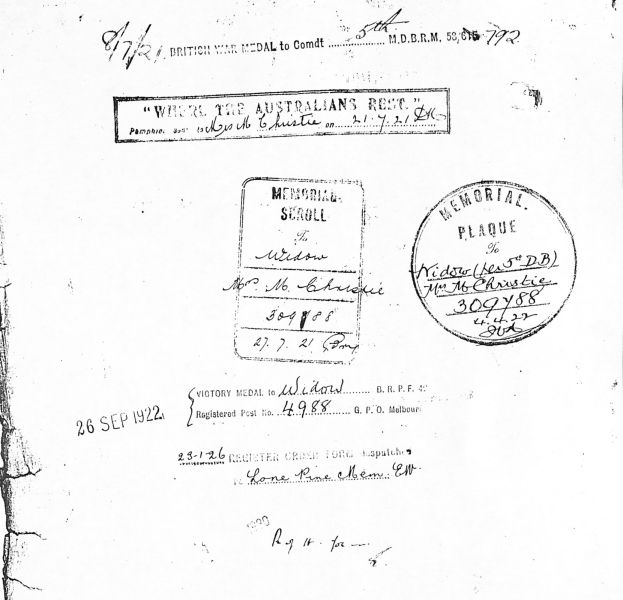 8/7/21. BRITISH WAR MEDAL to Comdt 5th M.D.B.R.M. 53,615 792
"WHERE THE AUSTRALIANS REST."
to Mrs M Christie on 21.7.21
MEMORIAL
SCROLL
To
Widow
Mrs. M. Christie
309788
27.7.21
MEMORIAL.
PLAQUE
To
Widow (per 5th D.B)
Mrs M. Christie
309788
4.4.22
VICTORY MEDAL to Widow B.R.P.F.
Registered Post No. 4988 G.P.O. Melbour
26 SEP 1922
23-1-26 REGISTER ORDER FORM Dispatched
Lone Pine Mem. EW.
1920